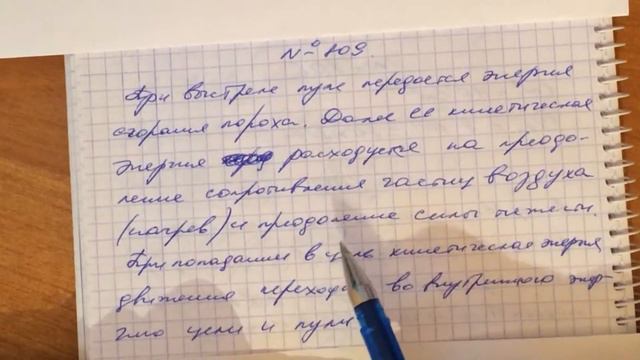 № 109
При выстреле пуле передается энергия
сгорания пороха. Далее ее кинетическая
энергия расходуется на преодо-
ление сопротивления частиц воздуха
(нагрев) и преодоление силы тяжести.
При попадании в цель кинетическая энергия
движения переходит во внутреннюю энер-
гию цели и пули